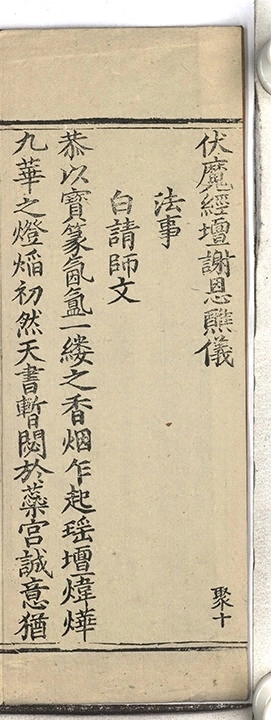 伏魔經壇謝恩醮儀
聚十
法事
白請師文
恭以寶篆氤氳一縷之香烟乍起瑶壇煒燁
九華之燈熖初然天書暫閟於蘂宮誠意猶